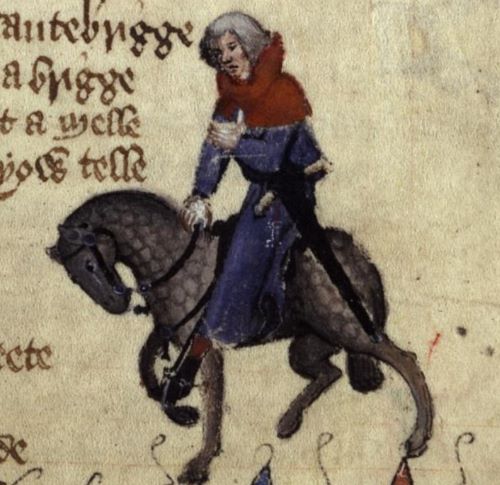 antebrigge
a brigge
t a Melle
yow telle
ete
de